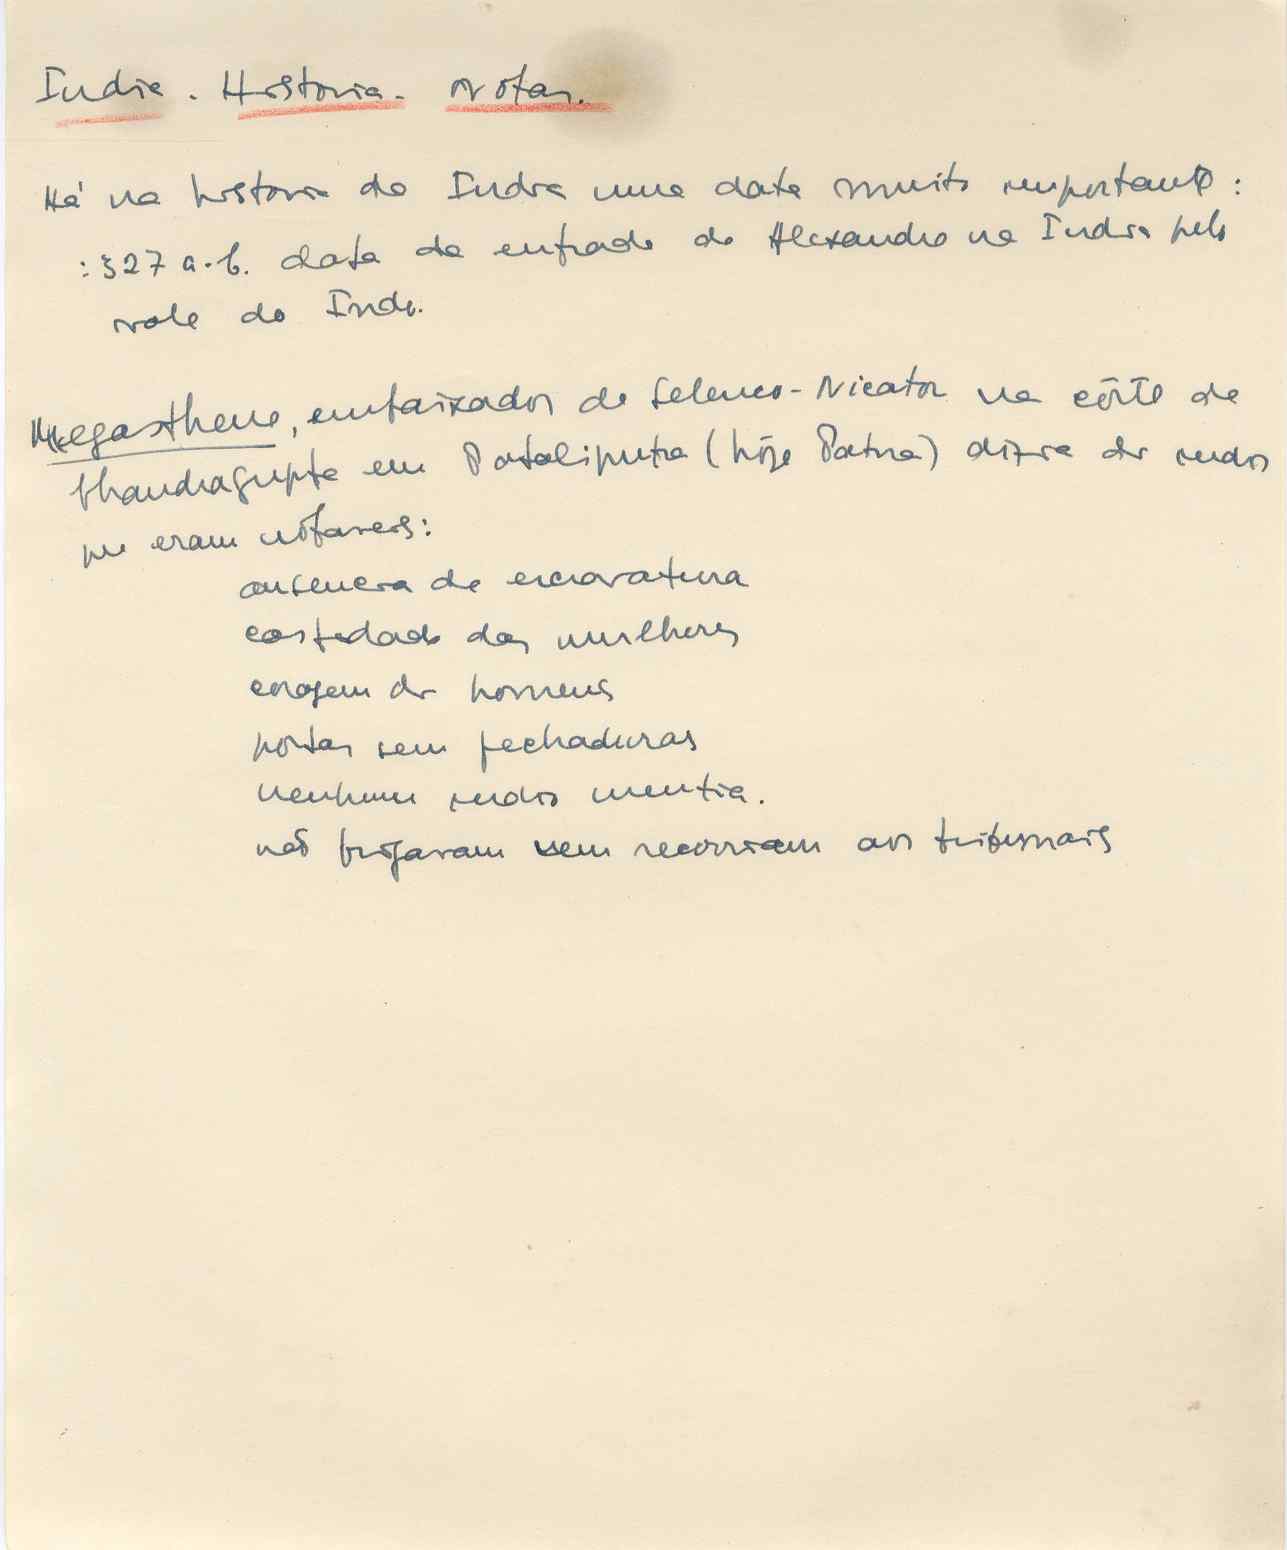 India. Historia. Notas.
Há na historia da India uma data muito importante:
: 327 a.C. data da entrada de Alexandre na India pelo
vale do Indo.
Megasthene, embaixador de Seleuco-Nicator na côrte de
Chandragupta em Pataliputra (hôje Patna) dizia dos indos
que eram notaveis:
ausencia de escravatura
castidade das mulheres
coragem dos homens
portas sem fechaduras
nenhum indo mentia.
não brigavam nem recorriam aos tribunais